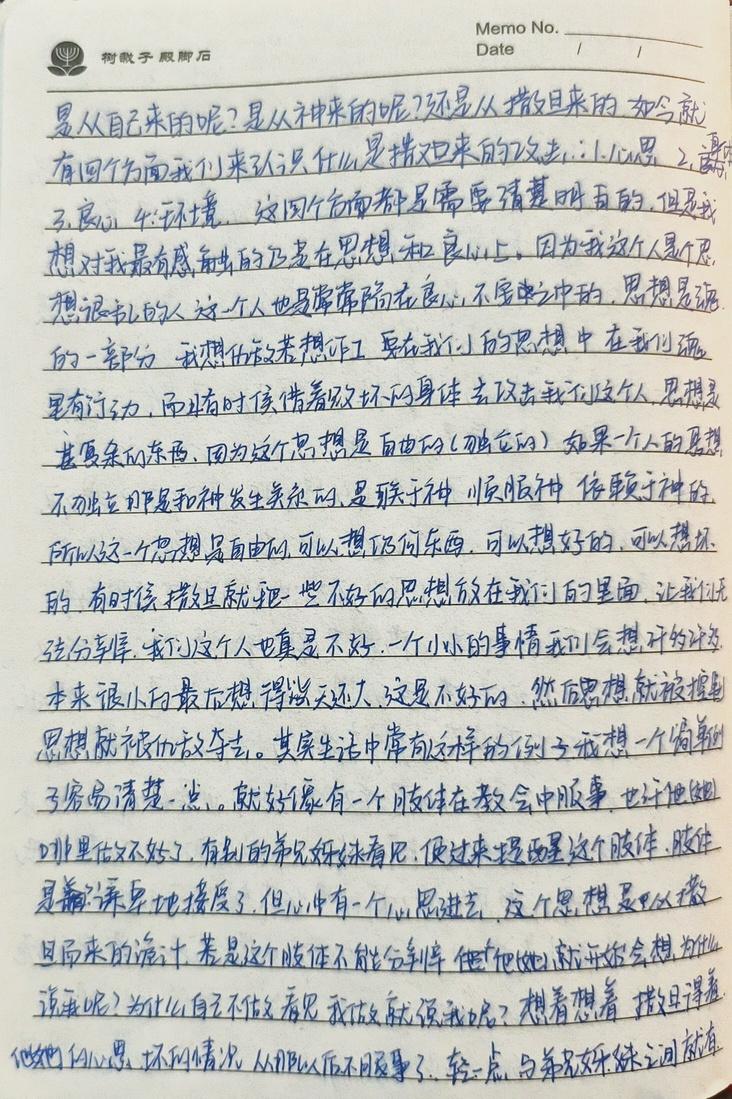 Memo No.
树栽子殿脚石
Date / /
是从自己来的呢？是从神来的呢？还是从撒旦来的 如今就
有四个方面我们来认识什么是撒旦来的攻击：1.心思 2.身体
3.良心 4.环境. 这四个方面都是需要清楚明白的，但是我
想对我最有感触的乃是在思想和良心上。因为我这个人是个思
想很乱的人 这一个人也是常常陷在良心不安之中的，思想是魂
的一部分 我想仇敌若想作工 要在我们的思想中 在我们魂
里有行动，而且有时候借着败坏的身体 去攻击我们这个人，思想是
甚复杂的东西、因为这个思想是自由的（独立的） 如果一个人的思想
不独立那是和神发生关系的，是联于神 顺服神 依赖于神的，
所以这一个思想是自由的，可以想任何东西，可以想好的，可以想坏
的，有时候撒旦就把一些不好的思想放在我们的里面，让我们无
法分辨，我们这个人也真是不好，一个小小的事情我们会想许多许多
本来很小的最后想得滔天还大，这是不好的，然后思想就被控制
思想就被仇敌夺去。其实生活中常有这样的例子 我想一个简单例
子容易清楚一点。就好像有一个肢体在教会中服事，也许他（她）
哪里做不好了，有别的弟兄姊妹看见，便过来提醒这个肢体，肢体
是谦卑地接受了，但心中有一个心思进去，这个思想是从撒
旦而来的诡计，若是这个肢体不能分辨 他（她）就开始会想，为什么
说我呢？为什么自己不做 看见我做就说我呢？想着想着 撒旦得着
他（她）的心思，坏的情况 从那以后不服事了，轻一点，与弟兄姊妹之间就有